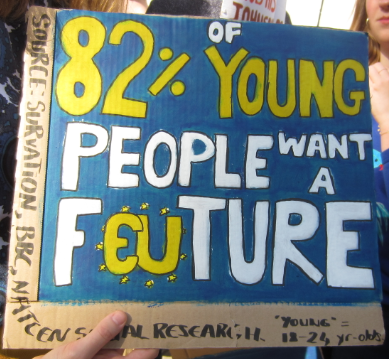 82% OF YOUNG
PEOPLE WANT
A
FEUTURE
SOURCE: SURVATION, BBC, NATCEN SOCIAL RESEARCH.
"YOUNG" =
18-24 yr-olds